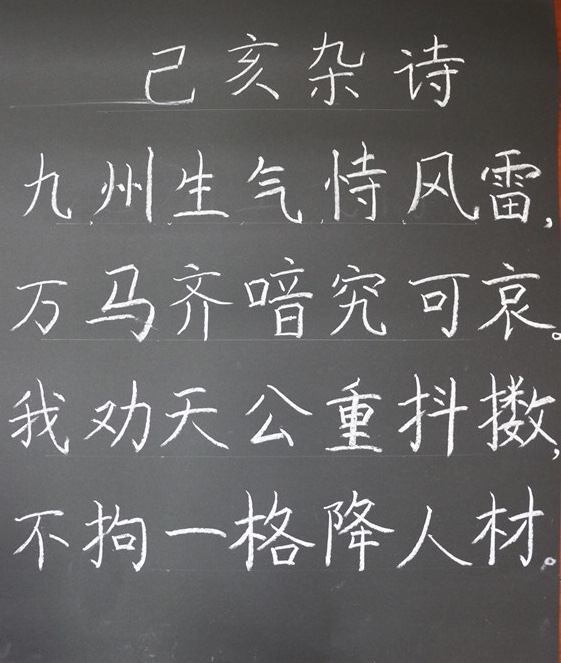 己亥杂诗
九州生气恃风雷，
万马齐喑究可哀。
我劝天公重抖擞，
不拘一格降人材。